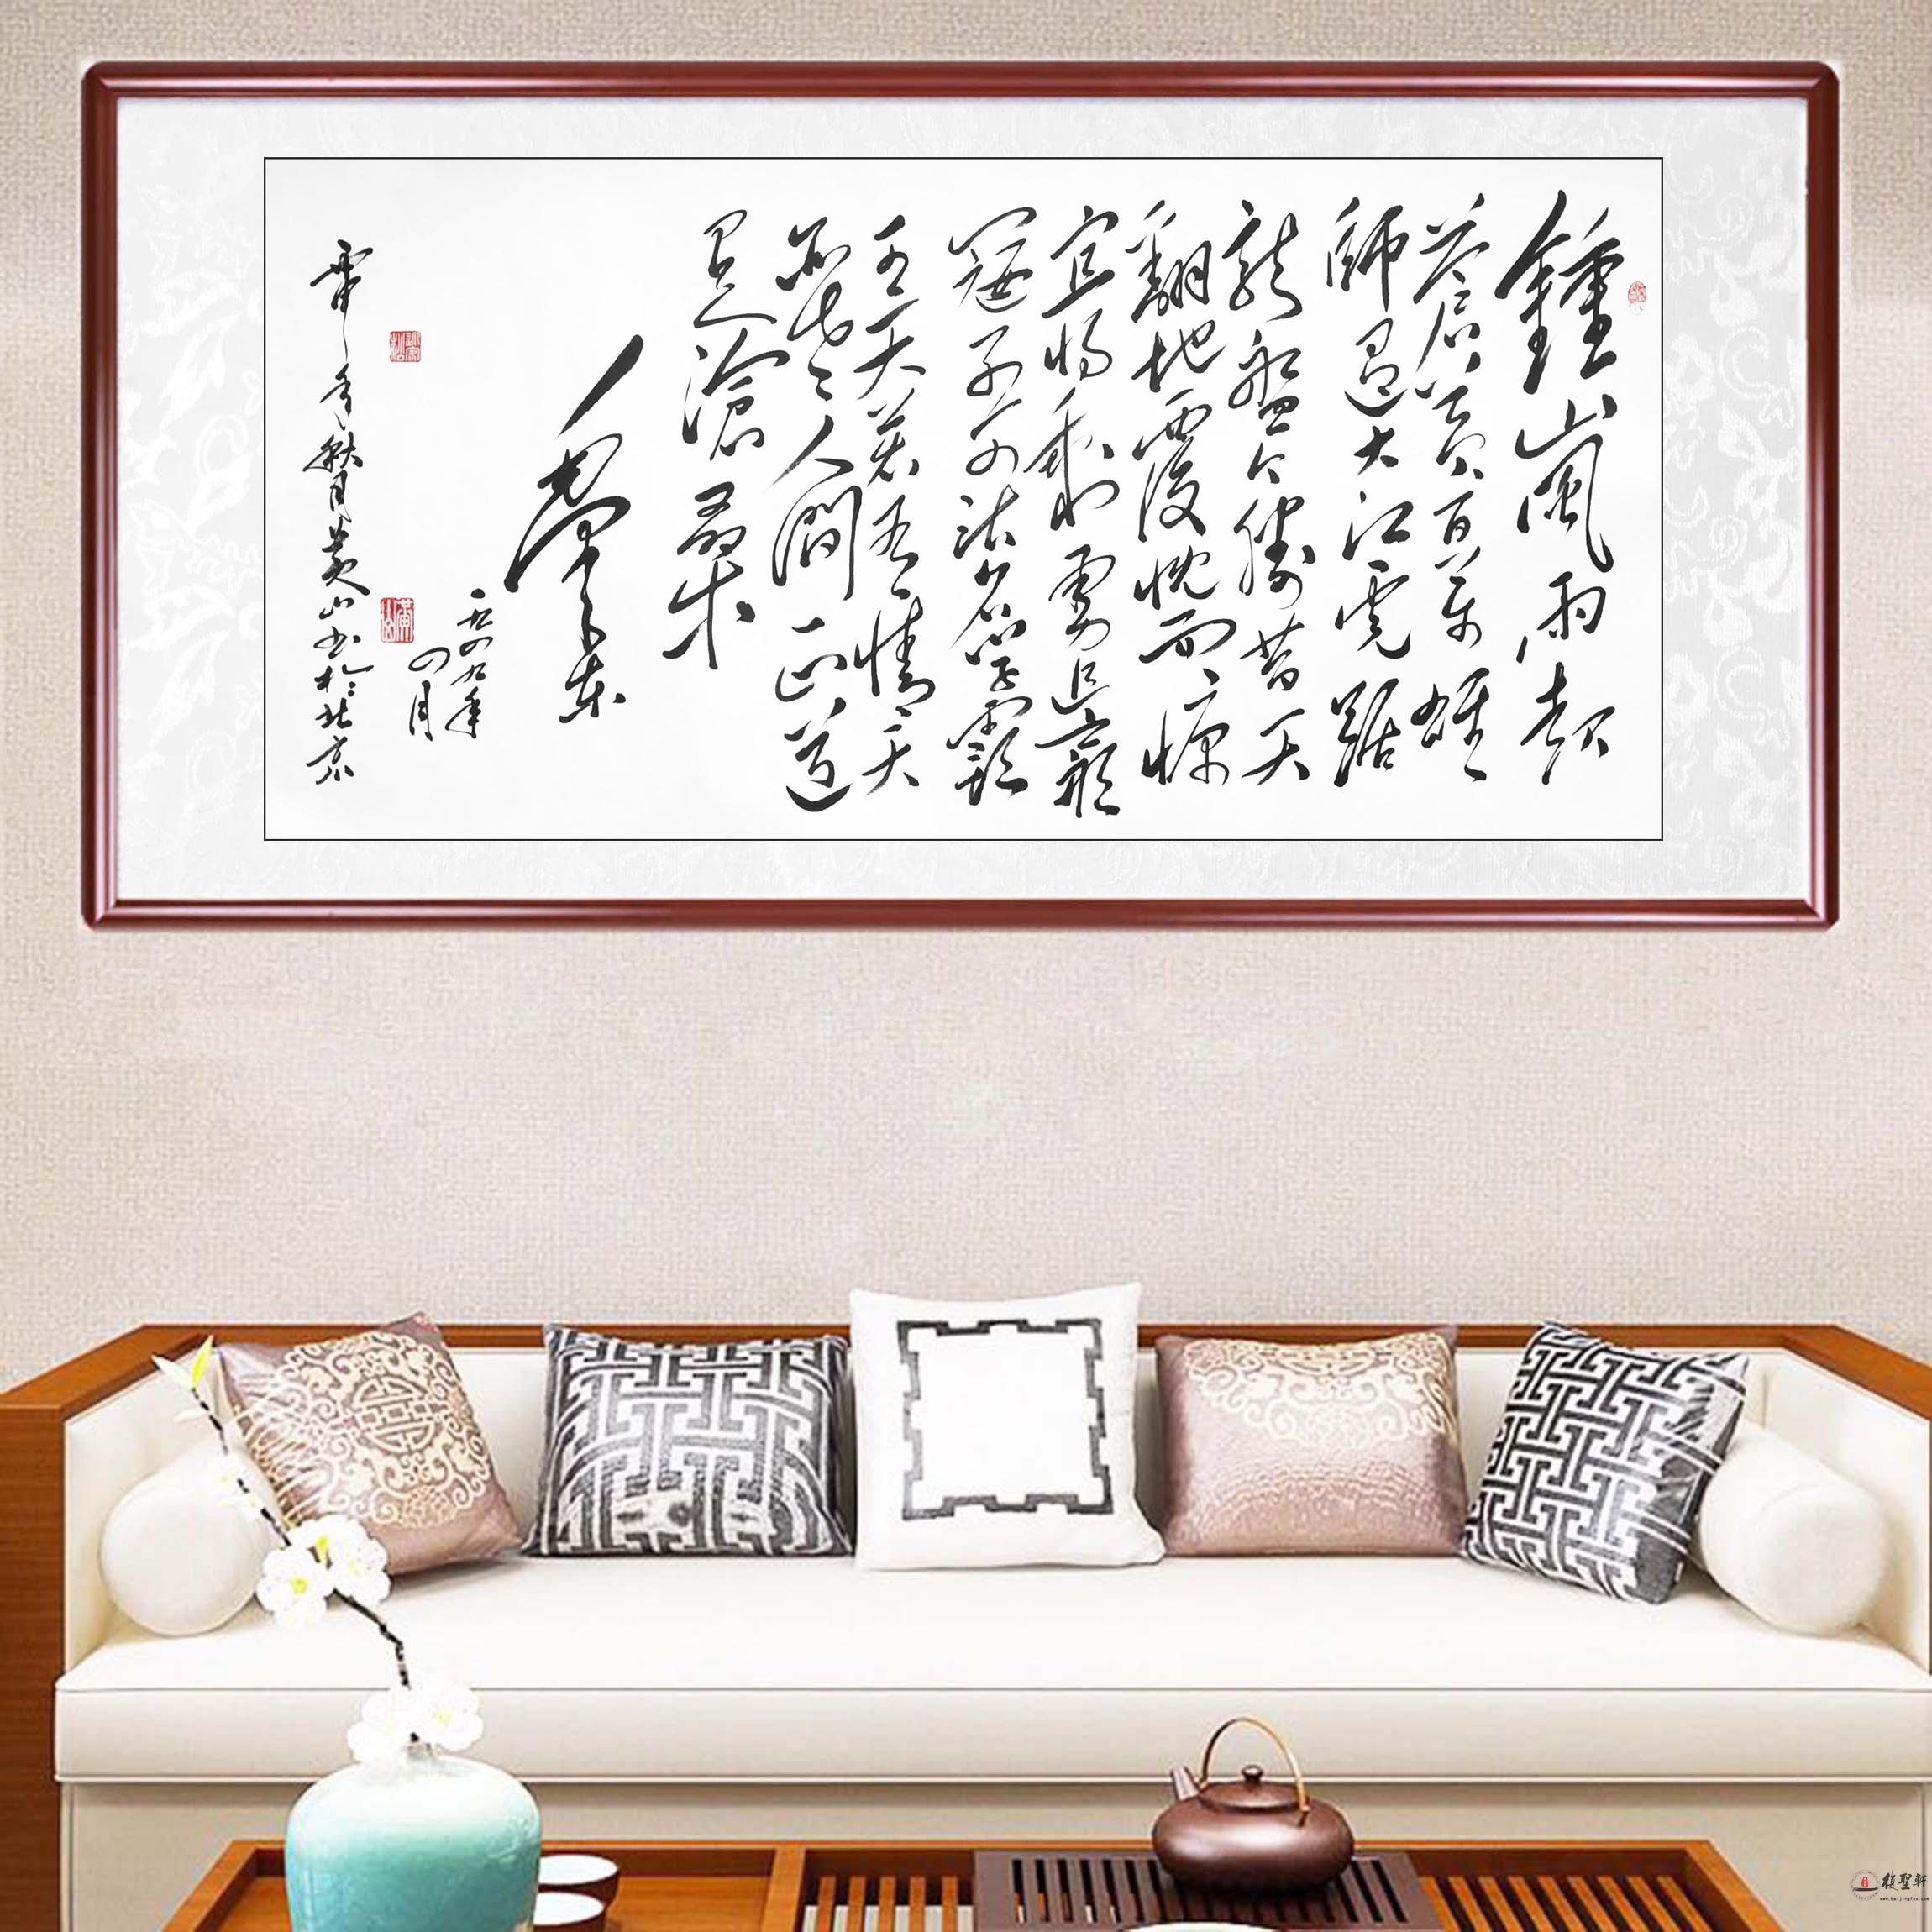 鍾山風雨起
蒼黃百萬雄
師過大江虎踞
龍盤今勝昔天
翻地覆慨而慷
宜將剩勇追窮
寇不可沽名學霸
王天若有情天
亦老人間正道
是滄桑
毛澤東
一九四九年
四月
年秋月黄山书於北京
聖軒